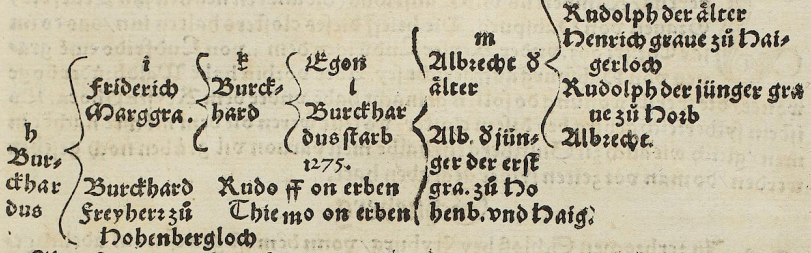 h
Bur-
ckhar
dus
i
Friderich
Marggra.
Burckhard
Freyherr zů
Hohenbergloch
k
Burck-
hard
Rudo ff on erben
Thiemo on erben
Egon
l
Burckhar
dus starb
1275.
m
Albrecht d̕
ålter
Alb. d̕ jün-
ger der erst
gra. zů Ho
henb. vnd Haig.
Rudolph der ålter
Henrich graue zů Hai-
gerloch
Rudolph der jünger gra
ue zů Horb
Albrecht.